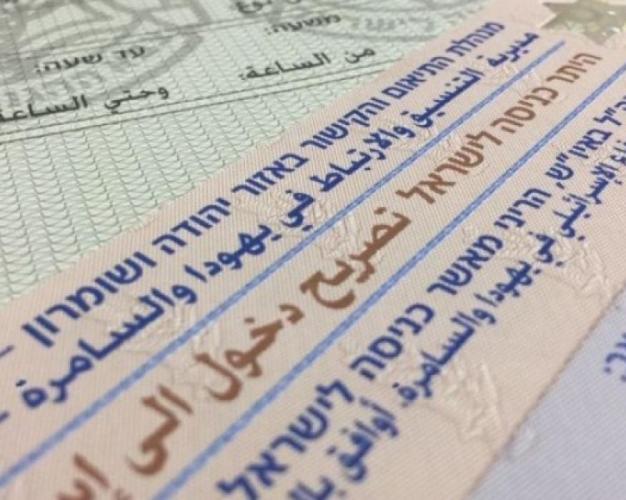 משעה:
עד שעה:
من الساعة:
وحتى الساعة
מנהלת התיאום והקישור באזור יהודה ושומרון -
مديرية التنسيق والارتباط في يهودا والسامرة -
היתר כניסה לישראל تصريح دخول الى
באיו"ש, הריני מאשר כניסה לישראל
الإسرائيلي في يهودا والسامرة، أوافق